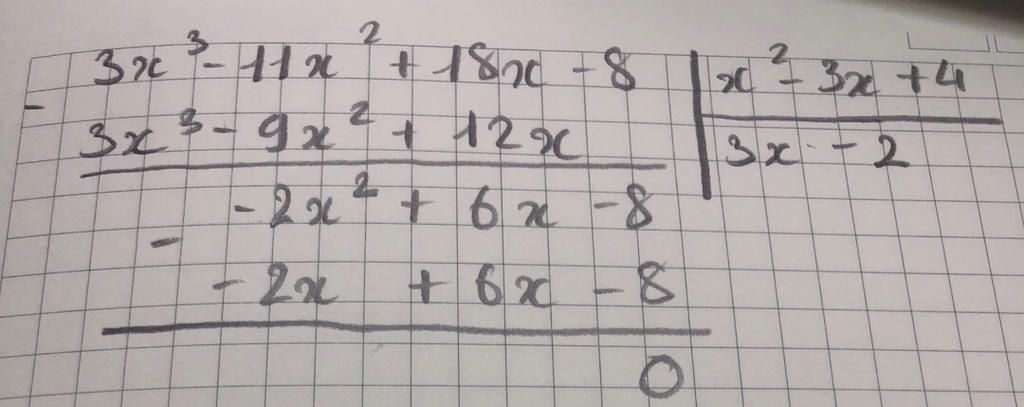 3x³ - 11x² + 18x - 8 | x² - 3x + 4
- 3x³ - 9x² + 12x | 3x - 2
-2x² + 6x - 8
- -2x + 6x - 8
0